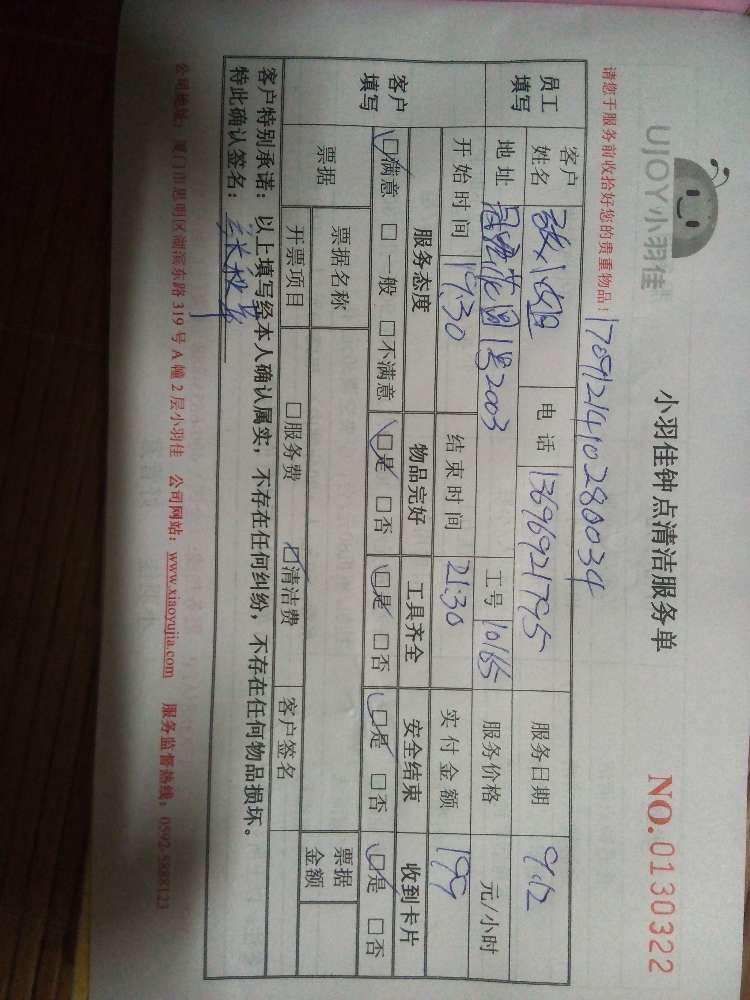 UJOY小羽佳
小羽佳钟点清洁服务单
NO.0130322
请您于服务前收拾好您的贵重物品！
170912141028034
员工填写
客户姓名
电话 13696921795
服务日期 9.12
地址
花园1号2003
工号 10165
服务价格 元/小时
开始时间 19:30
结束时间 21:30
实付金额 199
客户填写
服务态度 物品完好 工具齐全 安全结束 收到卡片
☑满意 □一般 □不满意 ☑是 □否 ☑是 □否 ☑是 □否 ☑是 □否
票据 票据名称 票据金额
开票项目 □服务费 ☑清洁费 客户签名
客户特别承诺：以上填写经本人确认属实，不存在任何纠纷，不存在任何物品损坏。
特此确认签名：
公司地址：厦门市思明区湖滨东路319号A幢2层小羽佳 公司网站：www.xiaoyujia.com 服务监督热线：0592-5888123